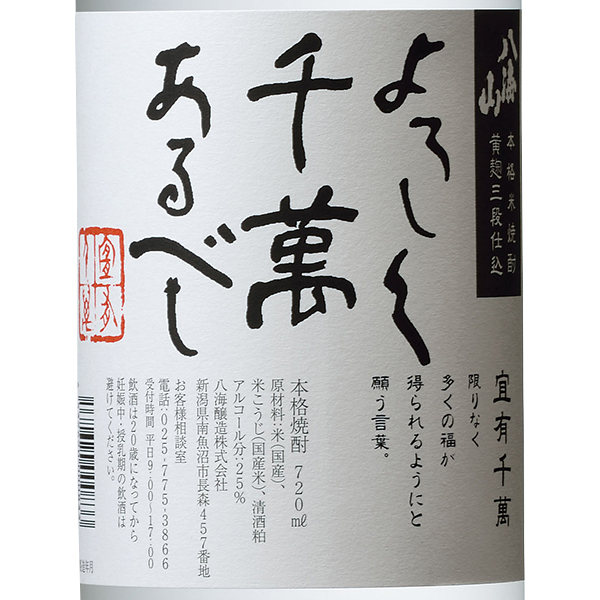 八海山
本格米焼酎
黄麹三段仕込
よろしく
千萬
あるべし
宜有千萬
限りなく
多くの福が
得られるようにと
願う言葉。
本格焼酎 720㎖
原材料:米(国産)、
米こうじ(国産米)、清酒粕
アルコール分:25%
八海醸造株式会社
新潟県南魚沼市長森457番地
お客様相談室
電話:025-775-3866
受付時間 平日9:00〜17:00
飲酒は20歳になってから
妊娠中・授乳期の飲酒は
避けてください。